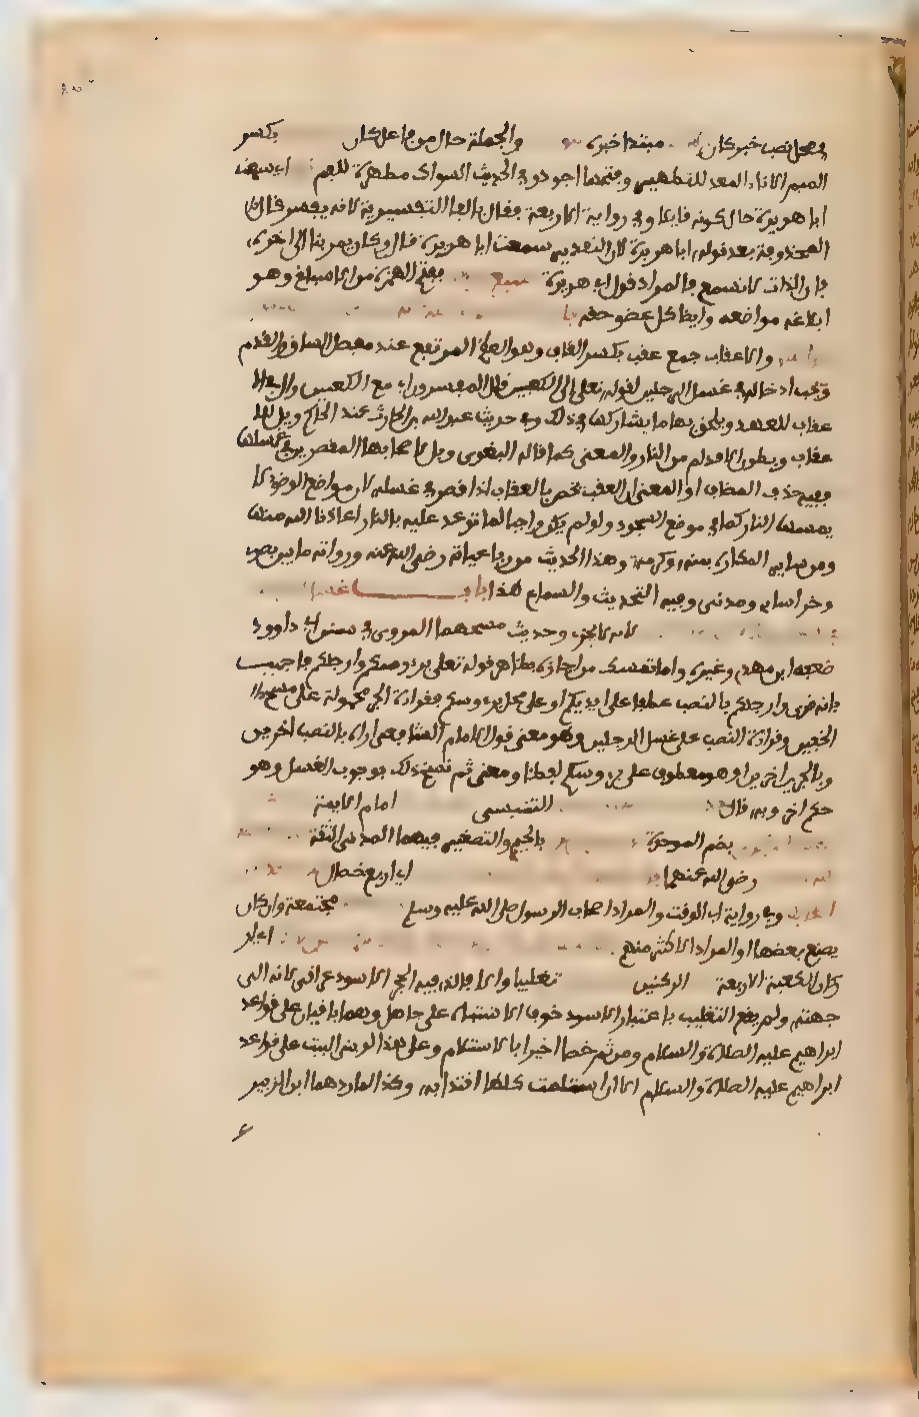 في محل نصب خبر كان مبتدا خبره والجملة حال من فاعل كان بكسر
الميم الاناء المعد للتطهير وفتحها اجود وفي الحديث السواك مطهرة للفم اي سمعت
ابا هريرة حال كونه قايلا وفي رواية الاربعة فقال بالفا التفسيرية لانه يفسر قال
المحذوفة بعد قوله ابا هريرة لان التقدير سمعت ابا هريرة قال وكان يمر بنا الى اخره
فان الذات لا تسمع فالمراد قول ابي هريرة بفتح الهمزة من الاسباغ وهو
ابلاغه مواضعه وايفا كل عضو حقه
والاعقاب جمع عقب بكسر القاف وهو العظم المرتفع عند مفصل الساق والقدم
ويجب ادخاله في غسل الرجلين لقوله تعالى الى الكعبين قال المفسرون اي مع الكعبين وال في الا
عقاب للعهد ويلحق بها ما يشاركها في ذلك وفي حديث عبد الله بن الحارث عند الحاكم ويل للا
عقاب وبطون الاقدام من النار والمعنى كما قاله البغوي ويل لاصحابها المقصرين في غسلها
ففيه حذف المضاف او المعنى ان العقب تخص بالعقاب اذا قصر في غسله لان مواضع الوضوء لا
تمسها النار كما في موضع السجود ولو لم يكن واجبا لما توعد عليه بالنار اعاذنا الله منها
ومن ساير المكاره بمنه وكرمه وهذا الحديث من رباعياته رضي الله عنه ورواته ما بين بصري
وخراساني ومدني وفيه التحديث والسماع هذا باب غسل
لانه لا يجزي وحديث مسحهما المروي في سنن ابي داوود
ضعفه ابن مهدي وغيره واما تمسك من اجازه بظاهر قوله تعالى برءوسكم وارجلكم فاجيب
بانه قرئ وارجلكم بالنصب عطفا على ايديكم او على محل برءوسكم فقراءة الجر محمولة على مسح
الخفين وقراءة النصب على غسل الرجلين وهو معنى قول الامام الشافعي اراد بالنصب اخرين
وبالجر اخرين او هو معطوف على برءوسكم لفظا ومعنى ثم نسخ ذلك بوجوب الغسل وهو
حكم اخر وبه قال التنيسي امام الايمة
بضم الموحدة بالجيم والتصغير فيهما المدني الثقة
رضي الله عنهما اي اربع خصال
وفي رواية ابي الوقت والمراد اصحاب الرسول صلى الله عليه وسلم مجتمعة وان كان
يصنع بعضها او المراد الاكثر منهم اي
اركان الكعبة الاربعة الركنين تغليبا والا فالذي فيه الحجر الاسود عراقي لانه الى
جهته ولم يقع التغليب باعتبار الاسود خوف الاشتباه على جاهل وهما باقيان على قواعد
ابراهيم عليه الصلاة والسلام ومن ثم خصا اخيرا بالاستلام وعلى هذا لو بني البيت على قواعد
ابراهيم عليه الصلاة والسلام الان استلمت كلها اقتداء به وكذا لما ردهما ابن الزبير